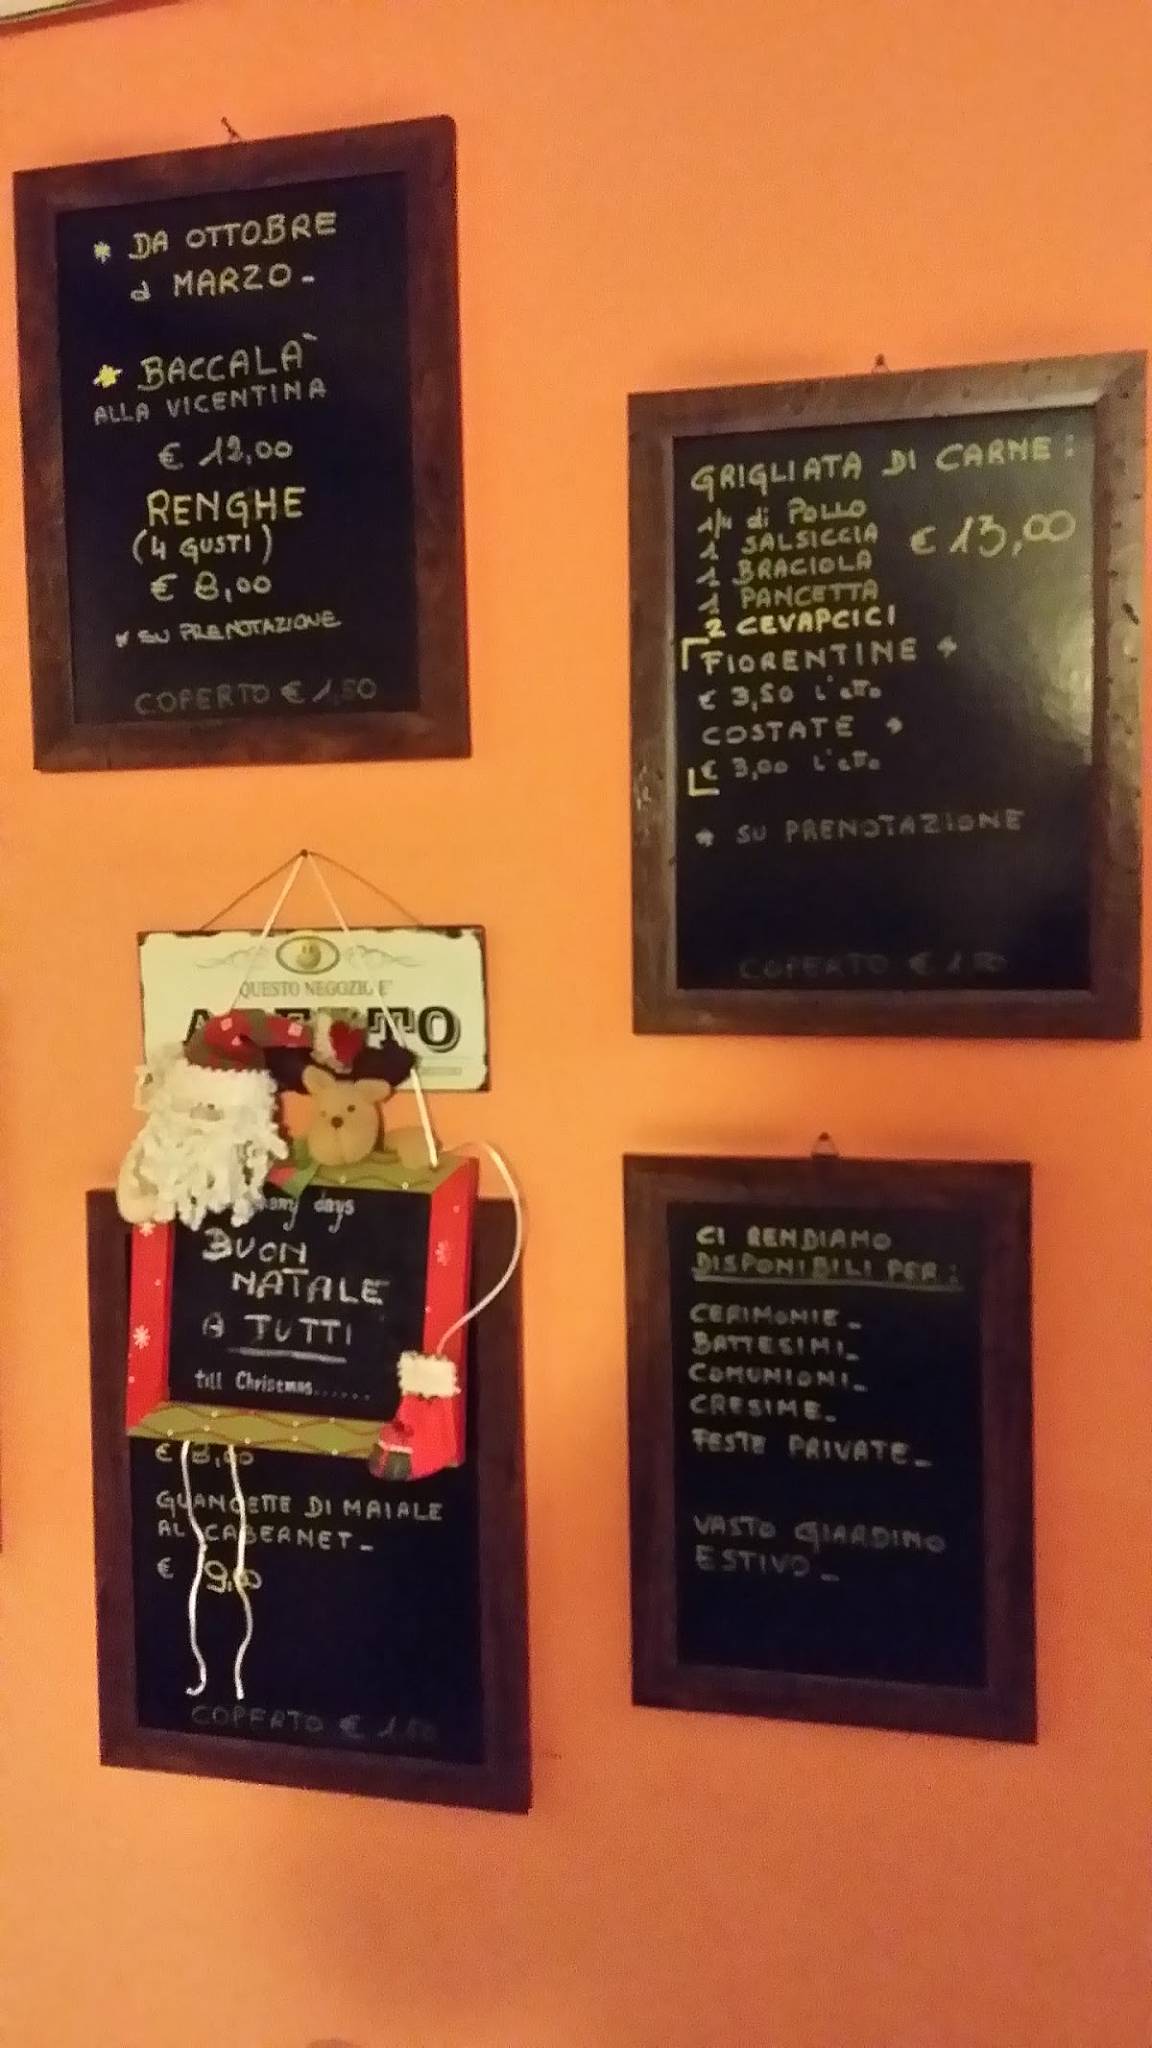 * DA OTTOBRE
a MARZO -
* BACCALÀ
ALLA VICENTINA
€ 12,00
RENGHE
(4 GUSTI)
€ 8,00
* SU PRENOTAZIONE
COPERTO € 1,50
GRIGLIATA DI CARNE:
1/4 di POLLO
1 SALSICCIA
€ 13,00
1 BRACIOLA
1 PANCETTA
2 CEVAPCICI
FIORENTINE *
€ 3,50 L'etto
COSTATE *
€ 3,00 L'etto
* SU PRENOTAZIONE
COPERTO € 1,50
QUESTO NEGOZIO E'
days
BUON
NATALE
A TUTTI
till Christmas......
€ 8,00
GUANCETTE DI MAIALE
AL CABERNET -
€ 9,00
COPERTO € 1,50
CI RENDIAMO
DISPONIBILI PER:
CERIMONIE -
BATTESIMI -
COMUNIONI -
CRESIME -
FESTE PRIVATE -
VASTO GIARDINO
ESTIVO -